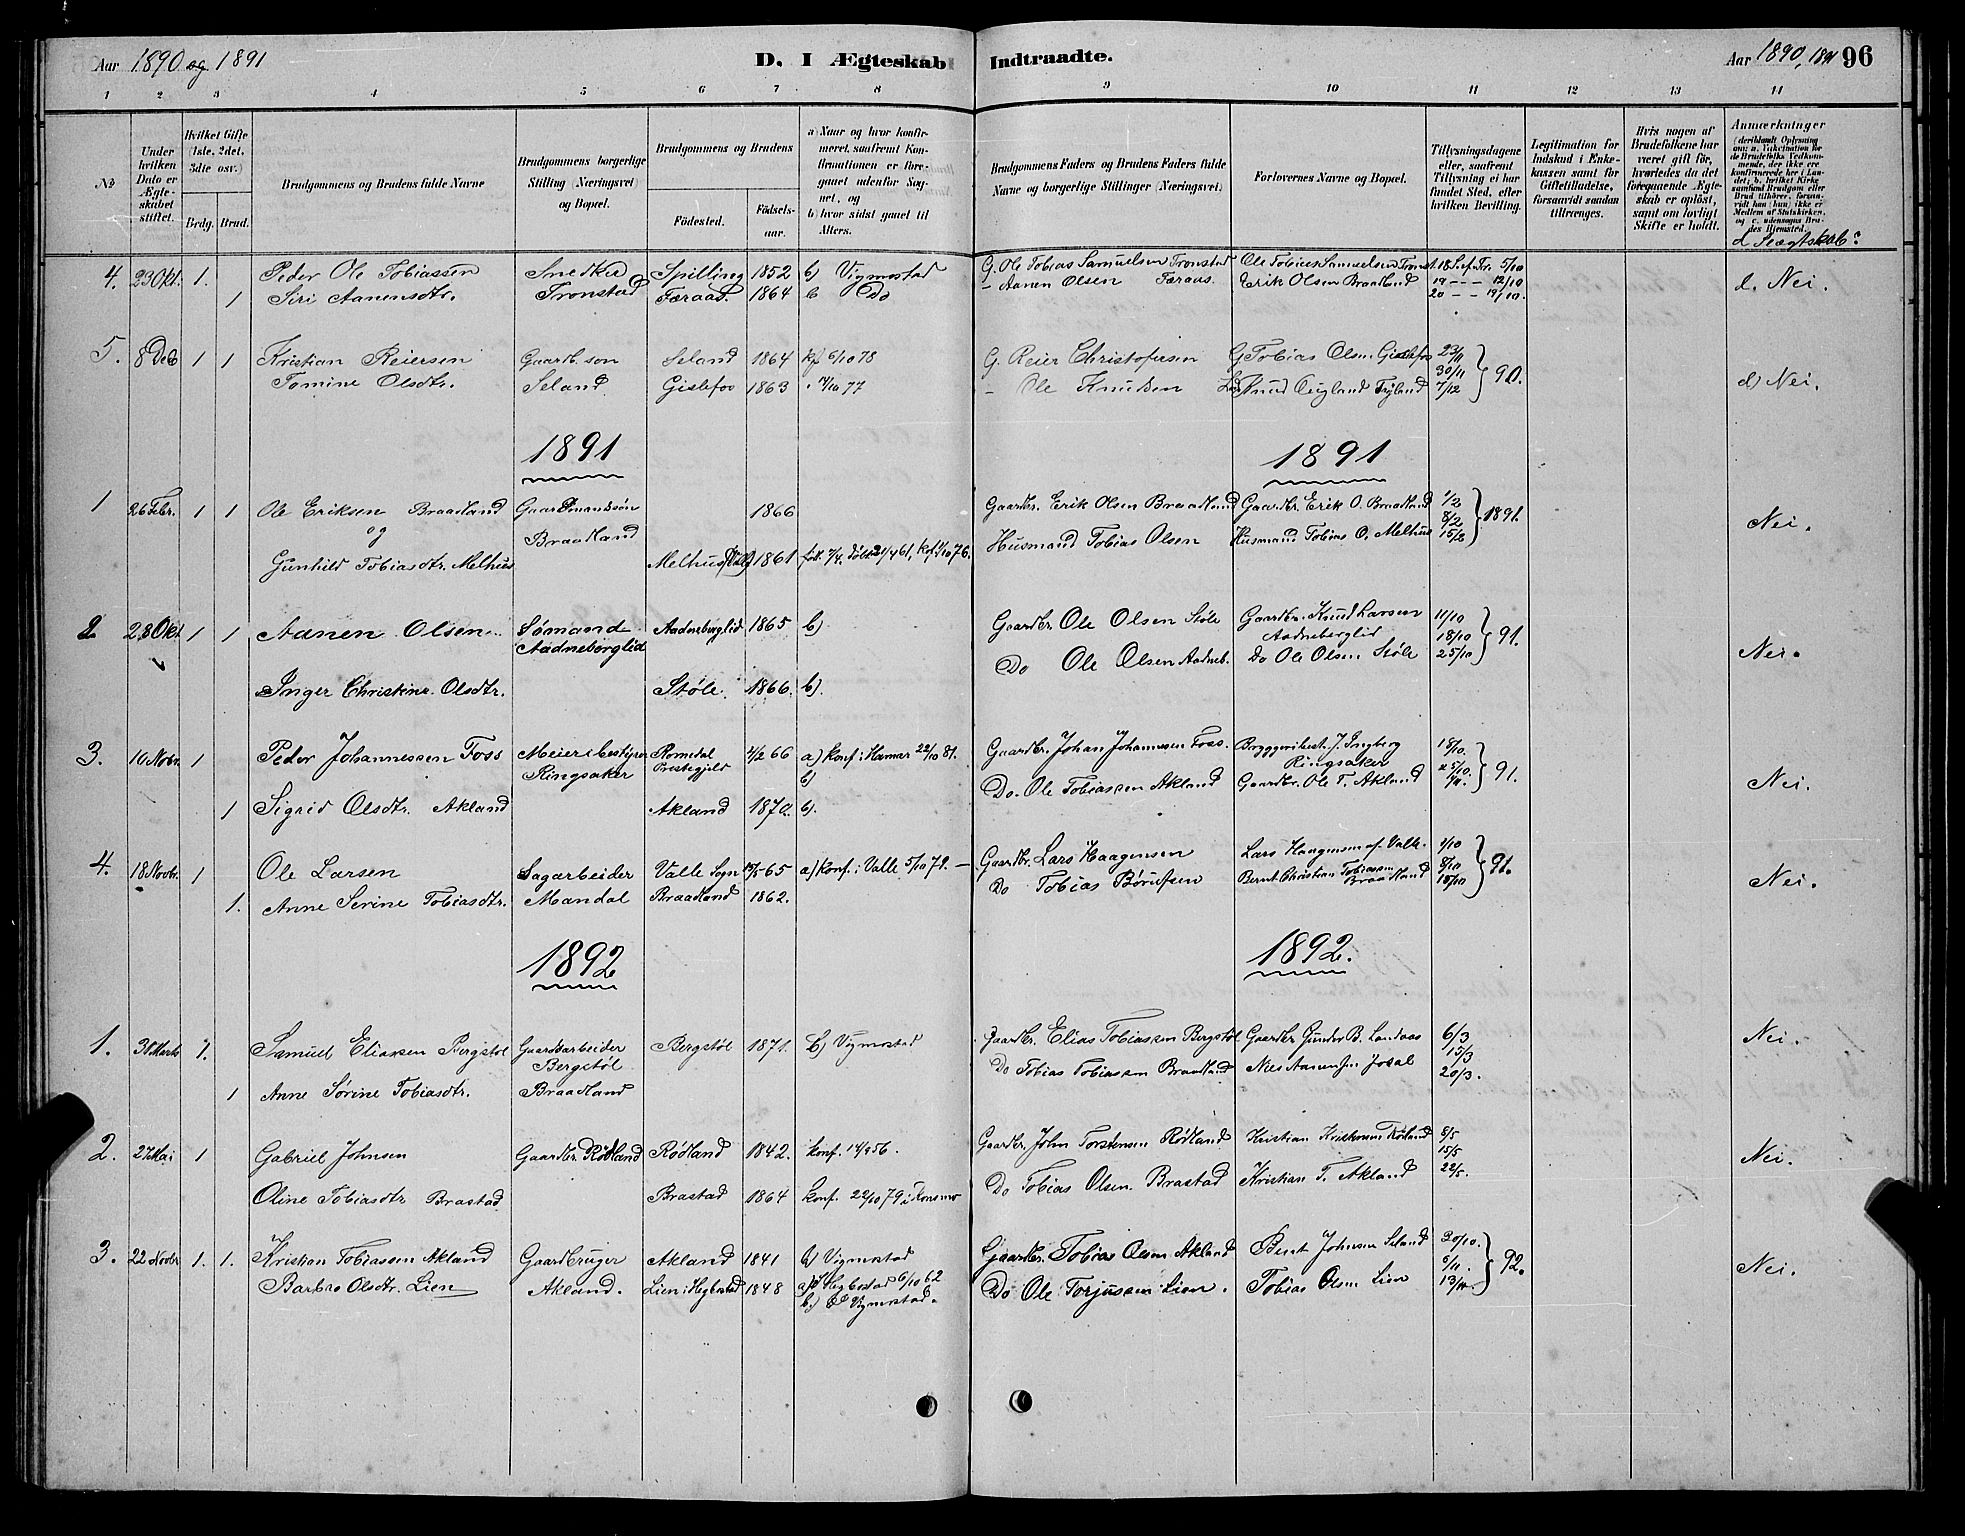 Aar 1890 og 1891
D. I Ægteskab Indtraadte.
Aar 1890, 1891 96
1 2 3 4 5 6 7 8 9 10 11 12 13 14
No
Under hvilken Dato er Ægteskabet stiftet.
Hvilket Gifte (1ste, 2det, 3die osv.)
Brdg. Brud.
Brudgommens og Brudens fulde Navne
Brudgommens borgerlige Stilling (Næringsvei) og Bopæl.
Brudgommens og Brudens
Fødested.
Fødselsaar.
a) Naar og hvor konfirmeret, saafremt Konfirmationen er foregaaet udenfor Sognet, og
b) hvor sidst gaaet til Alters.
Brudgommens Faders og Brudens Faders fulde Navne og borgerlige Stillinger (Næringsvei)
Forlovernes Navne og Bopæl.
Tillysningsdagene eller, saafremt Tillysning ei har fundet Sted, efter hvilken Bevilling.
Legitimation for Indskud i Enkekassen samt for Giftetilladelse, forsaavidt saadan tiltrænges.
Hvis nogen af Brudefolkene har været gift før, hvorledes da det foregaaende Ægteskab er opløst, samt om lovligt Skifte er holdt.
Anmærkninger
d. Slægtskab?
4. 23 Okt. 1. Peder Ole Tobiassen Snedker Spilling 1852 b) Vigmostad G. Ole Tobias Samuelsen Tronstad Ole Tobias Samuelsen Tronst. 18 S. ef. Tr. 5/10 d. Nei.
1 Siri Aanensdtr. Tronstad Færaas. 1864 b Do - Aanen Olsen Færaas. Erik Olsen Braadland 19 - - - 12/10
20 - - 19/10.
5. 8 Decb 1 1 Kristian Reiersen Gaardb. søn Seland 1864 kf 6/10 78 G. Reier Christofersen G Tobias Olsen Gislefos 23/11
30/11 } 90.
Tomine Olsdtr. Seland Gislefos 1863 77 - Ole Knudsen Knud Øigland Fryland 7/12 d) Nei.
1891 1891
1 26 Febr. 1 1 Ole Eriksen Braadland Gaardmandsøn 1866 Gaardbr. Erik Olsen Braadland Gaardbr. Erik O. Braadland 1/2
og Braadland 8/2 } 1891. Nei.
Husmand Tobias Olsen Husmand Tobias O. Melhus 15/2
Gunhild Tobiasdtr. Melhus Melhus 1861
2 28 Okt 1 1 Aanen Olsen Sømand Aadneberglid 1865 b) Gaardbr. Ole Olsen Støle Gaardbr. Knud Larsen 11/10
Aadneberglid Aadneberglid 18/10 } 91.
Do Ole Olsen Aadneb. Do Ole Olsen Støle 25/10 Nei.
Inger Christine Olsdtr. Støle. 1866. b).
3. 10 Novbr. 1 Peder Johannessen Foss Meieribestyrer Romedal 4/2 66 a) konf. i Hamar 22/10 81. Gaardbr. Johan Johannessen Foss. Bryggeribest. J. Ingberg 18/10.
Ringsaker Prestegjeld b) Ringsaker 25/10. } 91. Nei.
Do. Ole Tobiassen Akland Gaardbr. Ole T. Akland
1 Sigrid Olsdtr. Akland Akland 1870. b).
4. 18 Novbr. 1 Ole Larsen Sagarbeider Valle Sogn 65 a) konf. i Valle 5/10 79. - Gaardbr. Lars Haagensen Lars Haagensen af Valle. 1/10
1. Anne Serine Tobiasdtr. Mandal Braadland 1862. Do Tobias Børufsen Bernt Christian Tobiassen Braadland 8/10 } 91. Nei.
18/10
1892 1892.
1. 31 Marts 1. Samuel Eliassen Bergstøl Gaardsarbeider Bergstøl 1871. b) Vigmostad Gaardbr. Elias Tobiassen Bergstøl Gaardbr Gunder B. Landaas 6/3 Nei.
Bergstøl Do Tobias Tobiassen Braadland Niels Aanensen Josdal 15/3
1 Anne Sørine Tobiasdtr. Braadland 20/3.
2. 27 Mai 1 Gabriel Johnsen Gaardbr. Rødland Rødland 1842. konf. 14/9 56. Gaardbr. John Torstensen Rødland Kristian Kristensen Rødland 8/5
15/5 Nei.
Oline Tobiasdtr Brastad Brastad 1864 konf. 22/10 79 i Konsmo Do Tobias Olsen Brastad Kristian T. Akland 22/5.
3. 22 Novbr 1. 1. Kristian Tobiassen Akland Gaardbruger Akland 1841 b) Vigmostad Gaardbr. Tobias Olsen Akland Bernt Johnsen Seland 30/10.
Barbro Olsdtr. Lien Akland. Lien i Hegbestad 1848 a) Hegbestad 6/10 62 Do Ole Torjussen Lien. Tobias Olsen Lien 6/11. } 92. Nei.
b) Vigmostad. 13/11